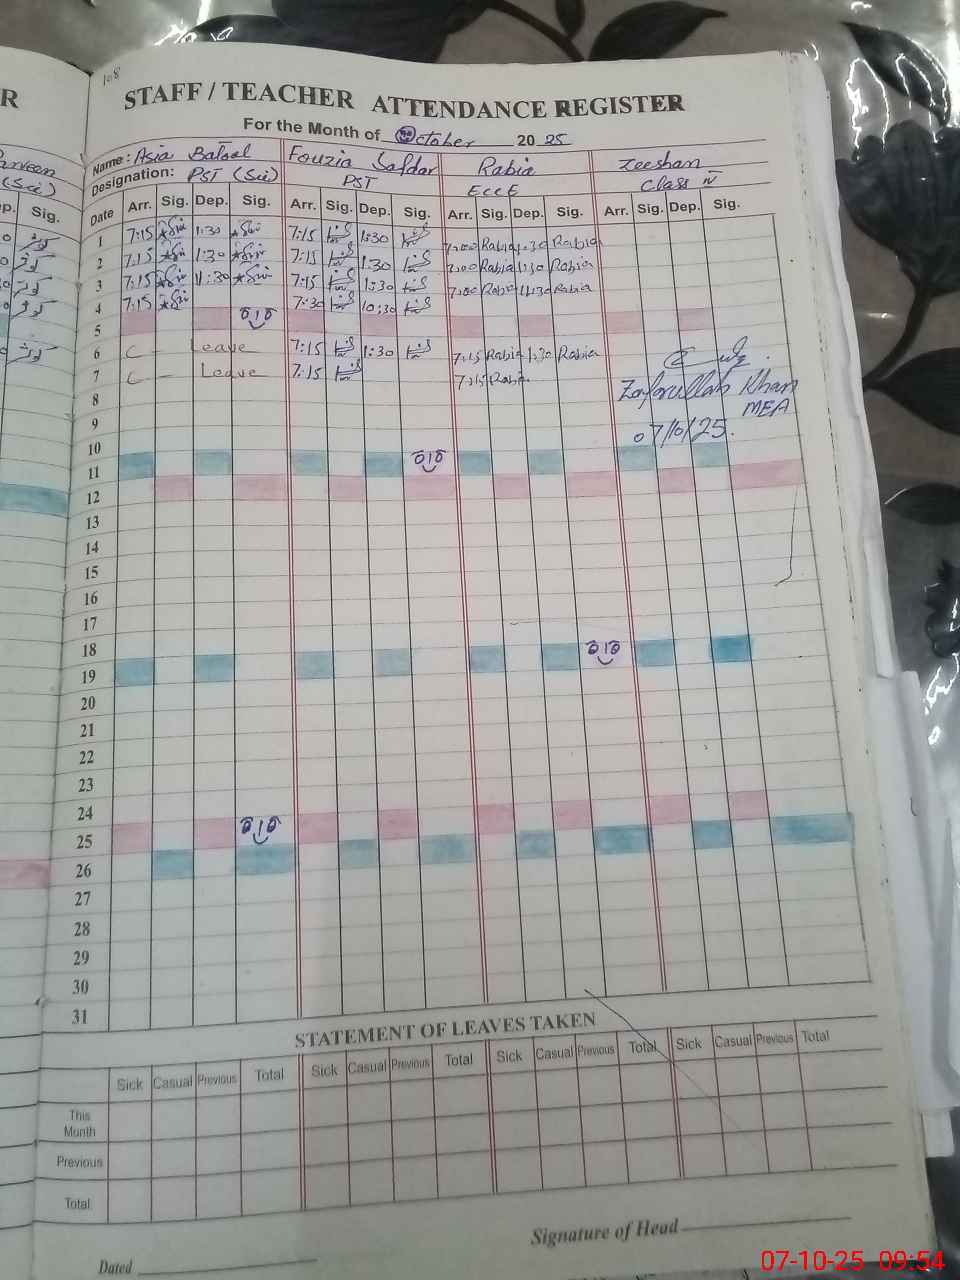 108
STAFF / TEACHER ATTENDANCE REGISTER
For the Month of October 20 25
Name: Asia Batool Fouzia Safdar Rabia Zeeshan
Designation: PST (Sci) PST ECCE Class IV
Date Arr. Sig. Dep. Sig. Arr. Sig. Dep. Sig. Arr. Sig. Dep. Sig. Arr. Sig. Dep. Sig.
1 7:15 1:30 7:15 1:30 7:00 Rabia 1:30 Rabia
2 7:15 1:30 7:15 1:30 7:00 Rabia 1:30 Rabia
3 7:15 11:30 7:15 1:30 7:00 Rabia 11:30 Rabia
4 7:15 7:30 10:30
5
6 C - Leave 7:15 1:30 7:15 Rabia 1:30 Rabia
7 C - Leave 7:15 7:15 Rabia
Zafarullah Khan
8 MEA
9 07/10/25.
10
11
12
13
14
15
16
17
18
19
20
21
22
23
24
25
26
27
28
29
30
31
STATEMENT OF LEAVES TAKEN
Sick Casual Previous Total Sick Casual Previous Total Sick Casual Previous Total Sick Casual Previous Total
This
Month
Previous
Total
Signature of Head
Dated
R
(Sci)
Sig.
07-10-25 09:54